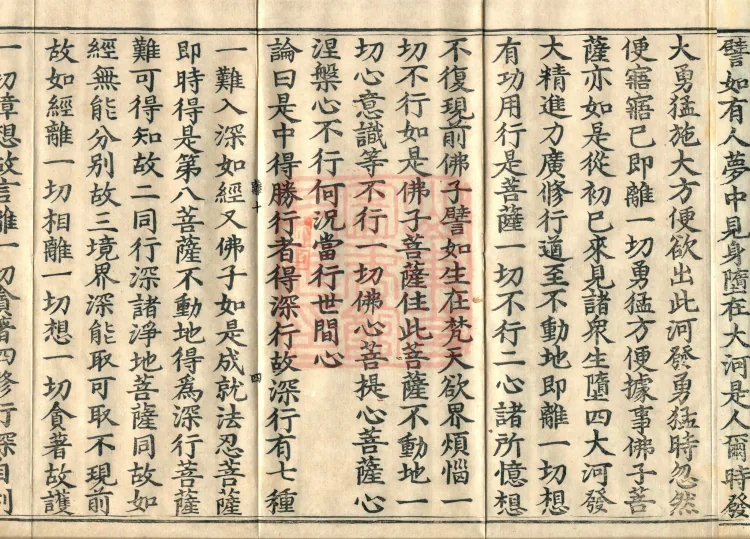 譬如有人夢中見身墮在大河是人爾時發
大勇猛施大方便欲出此河發勇猛時忽然
便寤寤已即離一切勇猛方便據事佛子菩
薩亦如是從初已來見諸衆生墮四大河發
大精進力廣修行道至不動地即離一切想
有功用行是菩薩一切不行二心諸所憶想
不復現前佛子譬如生在梵天欲界煩惱一
切不行如是佛子菩薩住此菩薩不動地一
切心意識等不行一切佛心菩提心菩薩心
涅槃心不行何況當行世間心
論曰是中得勝行者得深行故深行有七種
十
四
一難入深如經又佛子如是成就法忍菩薩
即時得是第八菩薩不動地得為深行菩薩
難可得知故二同行深諸淨地菩薩同故如
經無能分別故三境界深能取可取不現前
故如經離一切相離一切想一切貪著故護
一切障想故言離一切貪著四修行深自利